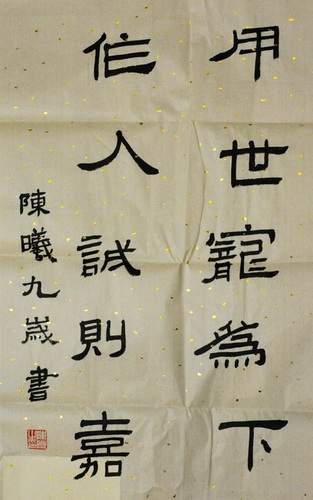 用世寵為下
作人誠則嘉
陳曦九歲書